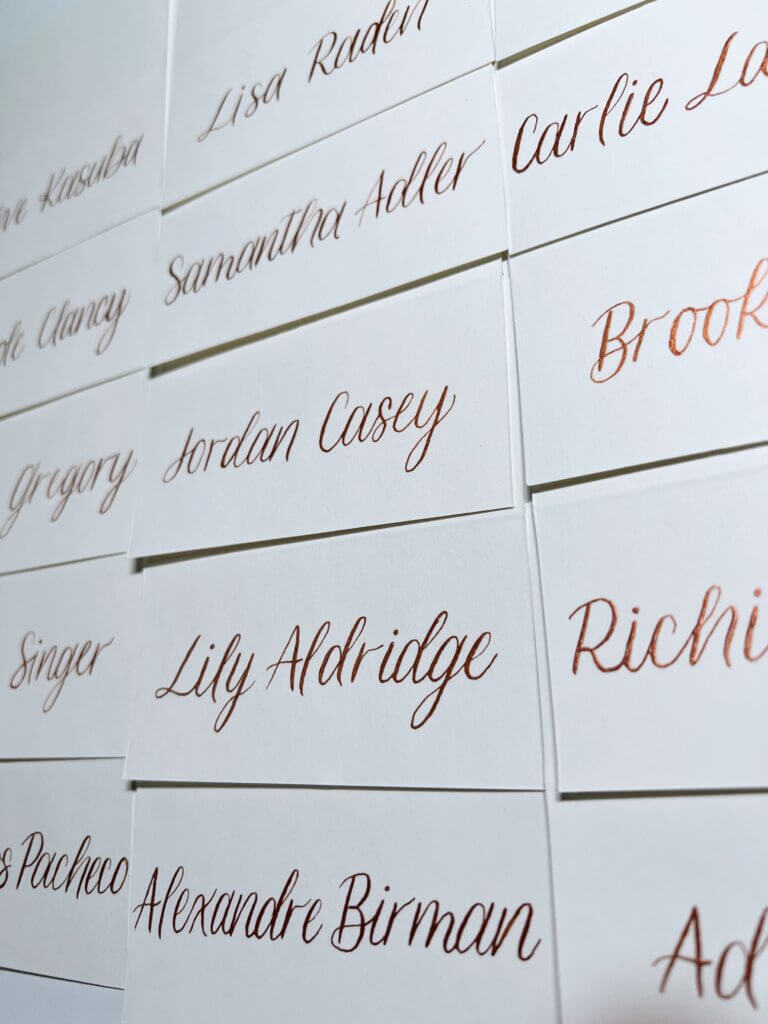 Kasuba
Clancy
Gregory
Singer
Pacheco
Lisa Raden
Samantha Adler
Jordan Casey
Lily Aldridge
Alexandre Birman
Carlie